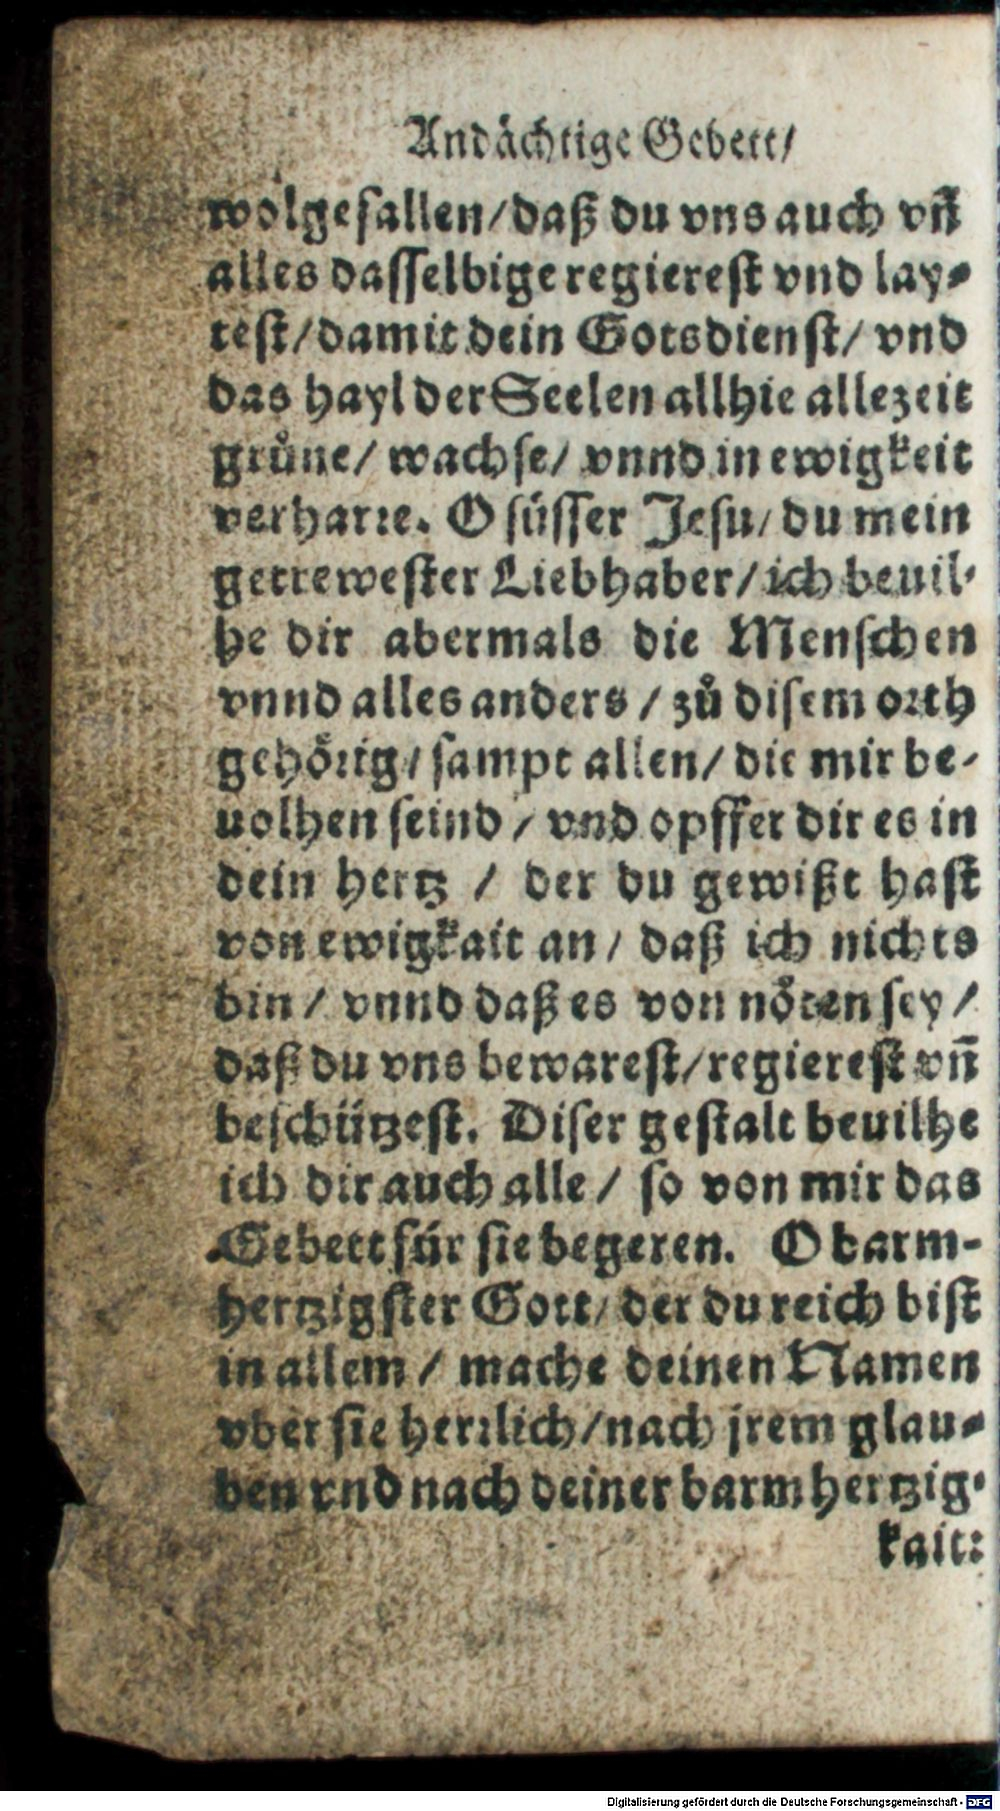 Andächtige Gebett/
wolgefallen/daß du vns auch vn̄
alles dasselbige regierest vnd lay⸗
test/damit dein Gotsdienst/ vnd
das hayl der Seelen allhie allezeit
grůne/ wachse/ vnnd in ewigkeit
verharre. O süsser Jesu/ du mein
getrewester Liebhaber/ ich beuil⸗
he dir abermals die Menschen
vnnd alles anders / zů disem orth
gehörig/ sampt allen/ die mir be⸗
uolhen seind / vnd opffer dir es in
dein hertz / der du gewißt hast
von ewigkait an / daß ich nichts
bin / vnnd daß es von nöten sey /
daß du vns bewarest/regierest vn̄
beschützest. Diser gestalt beuilhe
ich dir auch alle / so von mir das
Gebett für sie begeren. O barm⸗
hertzigster Gott/ der du reich bist
in allem / mache deinen Namen
vber sie herrlich/nach jrem glau⸗
ben vnd nach deiner barmhertzig⸗
kait:
Digitalisierung gefördert durch die Deutsche Forschungsgemeinschaft - DFG